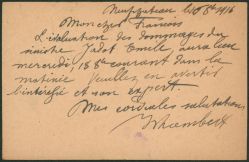 Neufchateau le 6 8bre 1916
Mon cher François
L'évaluation des dommages du
sinistre Jadot Emile aura lieu
mercredi, 18 8bre courant dans la
matinée. Veuillez en avertir
l'intéressé et son expert.
Mes cordiales salutations